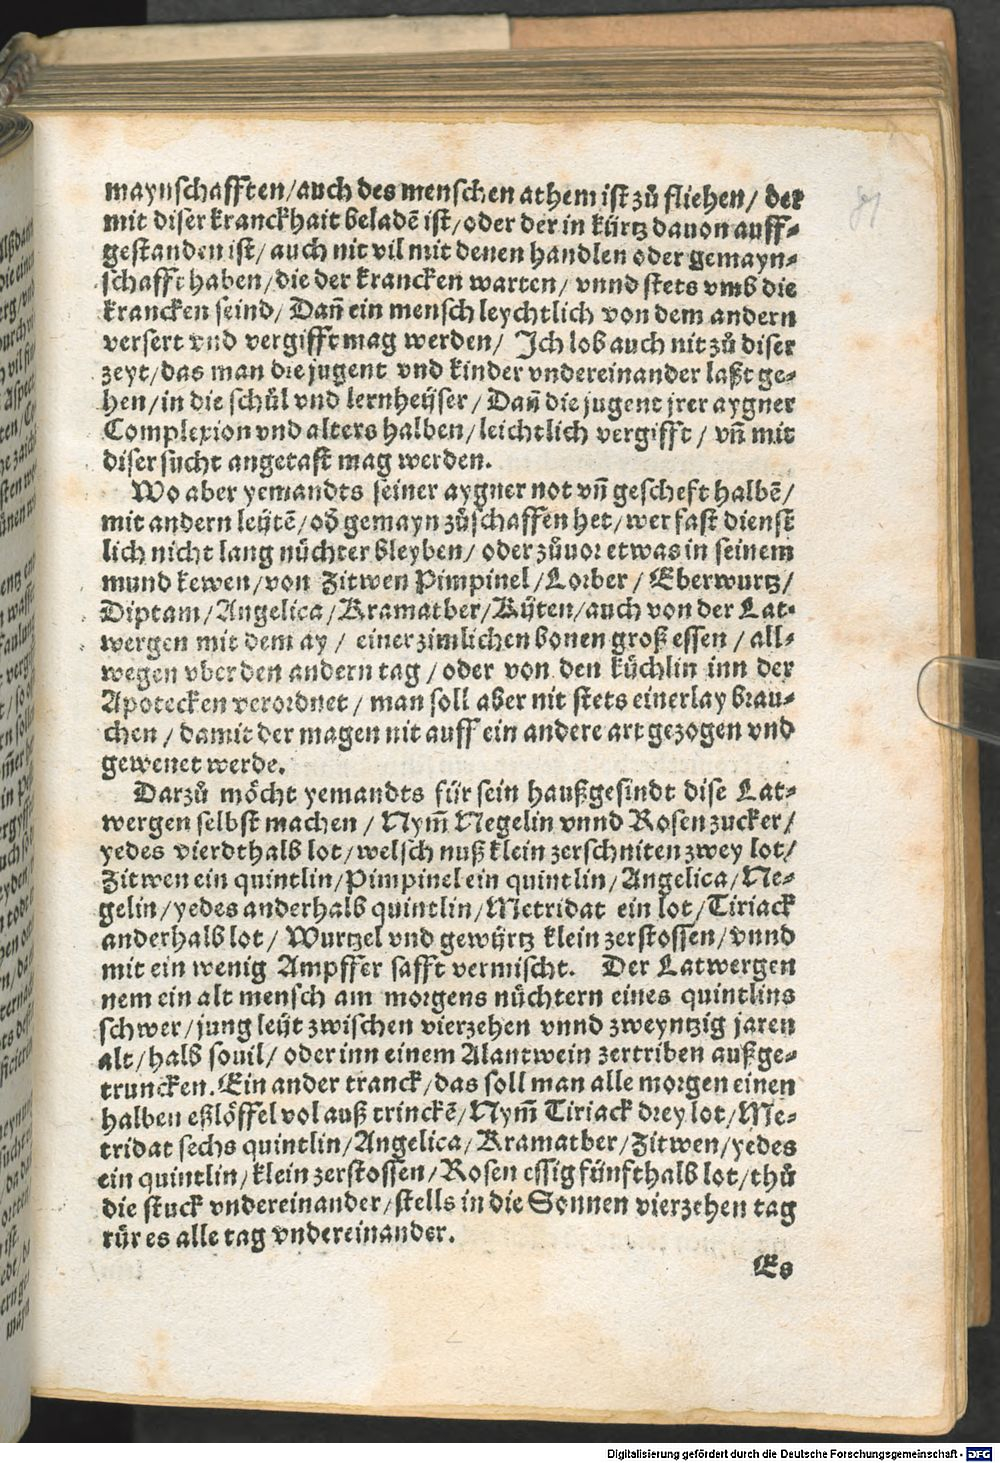 maynschafften/auch des menschen athem ist zů fliehen/ der
mit diser kranckhait beladē ist/oder der in kürtz dauon auff-
gestanden ist/ auch nit vil mit denen handlen oder gemayn-
schafft haben/die der krancken warten/ vnnd stets vmb die
krancken seind/ Dañ ein mensch leychtlich von dem andern
versert vnd vergifft mag werden/ Ich lob auch nit zů diser
zeyt/das man die jugent vnd kinder vndereinander laßt ge-
hen/in die schůl vnd lernheüser/ Dañ die jugent jrer aygner
Complexion vnd alters halben/leichtlich vergifft/ vñ mit
diser sucht angetast mag werden.
Wo aber yemandts seiner aygner not vñ gescheft halbē/
mit andern leütē/ oď gemayn zůschaffen het/wer fast dienst
lich nicht lang nüchter bleyben/ oder zůuor etwas in seinem
mund kewen/von Zitwen Pimpinel/Lorber/ Eberwurtz/
Diptam/Angelica/Kramatber/Rüten/auch von der Lat-
wergen mit dem ay/ einer zimlichen bonen groß essen/ all-
wegen vber den andern tag/ oder von den küchlin inn der
Apotecken verordnet/ man soll aber nit stets einerlay brau-
chen/ damit der magen nit auff ein andere art gezogen vnd
gewenet werde.
Darzů möcht yemandts für sein haußgesindt dise Lat-
wergen selbst machen/ Nym̄ Negelin vnnd Rosenzucker/
yedes vierdthalb lot/welsch nuß klein zerschniten zwey lot/
Zitwen ein quintlin/Pimpinel ein quintlin/Angelica/Ne-
gelin/yedes anderhalb quintlin/Metridat ein lot/Tiriack
anderhalb lot/ Wurtzel vnd gewürtz klein zerstossen/vnnd
mit ein wenig Ampffer safft vermischt. Der Latwergen
nem ein alt mensch am morgens nüchtern eines quintlins
schwer/jung leüt zwischen vierzehen vnnd zweyntzig jaren
alt/halb souil/ oder inn einem Alantwein zertriben außge-
truncken. Ein ander tranck/das soll man alle morgen einen
halben eßlöffel vol auß trinckē/Nym̄ Tiriack drey lot/Me-
tridat sechs quintlin/Angelica/Kramatber/Zitwen/yedes
ein quintlin/klein zerstossen/Rosen essig fünfthalb lot/thů
die stuck vndereinander/stells in die Sonnen vierzehen tag
rür es alle tag vndereinander.
Es
Digitalisierung gefördert durch die Deutsche Forschungsgemeinschaft - DFG